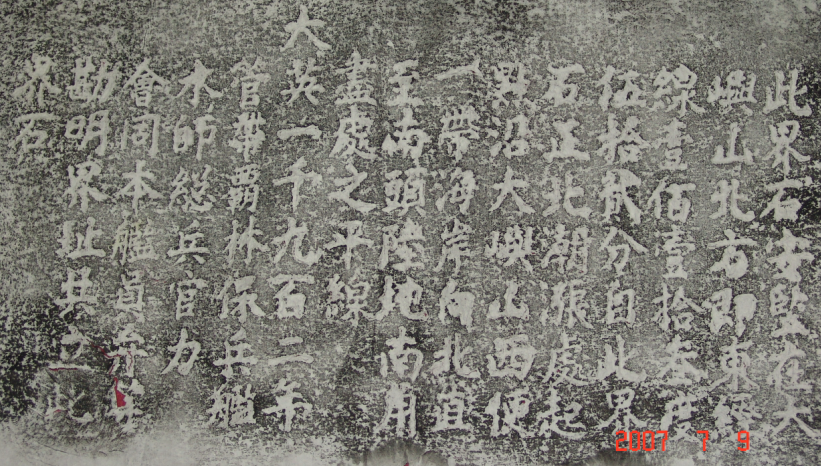 此界石安竪在大
嶼山北方即東經
線壹佰壹拾叁度
伍拾貳分自此界
石正北潮漲處起
點沿大嶼山西便
一帶海岸向北直
至南頭陸地南角
盡處之平線
大英一千九百二年
管帶霸林保兵艦
水師總兵官力
會同本艦員弁等
勘明界址共立此
界石
2007 7 9